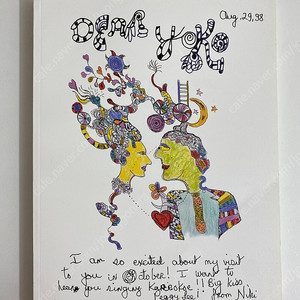 Aug. 29, 98
Dear Yoko
I am so excited about my visit
to you in October! I want to
hear you singing Karaoke!! Big kiss
from Niki